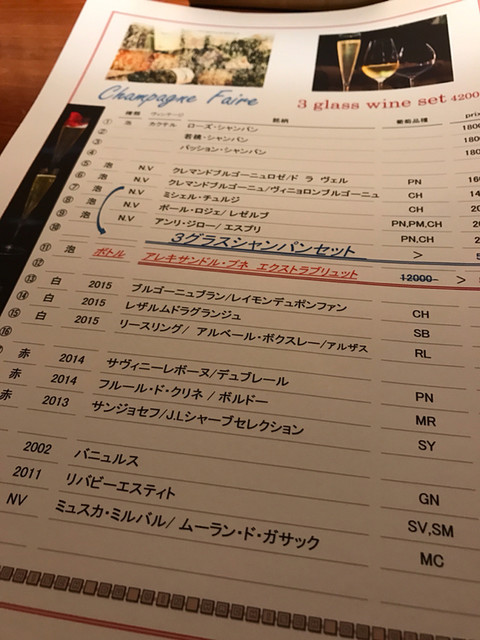 Champagne Faire
3 glass wine set 4200
種類 ヴィンテージ 銘柄 葡萄品種
① 泡 カクテル ローズ・シャンパン 1800
② 若鶴・シャンパン 180
③ パッション・シャンパン 180
④
⑤ 泡 N.V クレマンドブルゴーニュロゼ/ド ラ ヴェル PN 160
⑥ 泡 N.V クレマンドブルゴーニュ/ヴィニョロンブルゴーニュ CH 14
⑦ 泡 N.V ミシェル・チュルジ CH 20
⑧ 泡 N.V ポール・ロジェ/ レゼルブ PN,PM,CH 2
⑨ アンリ・ジロー/ エスプリ PN,CH 2
⑩ 3グラスシャンパンセット >
⑪ 泡 ボトル アレキサンドル・ブネ エクストラブリュット 12000 >
⑫
⑬ 白 2015 ブルゴーニュブラン/レイモンデュポンファン CH
⑭ 白 2015 レザルムドラグランジュ SB
⑮ 白 2015 リースリング/ アルベール・ボクスレー/アルザス RL
⑯
赤 2014 サヴィニーレボーヌ/デュブレール PN
赤 2014 フルール・ド・クリネ / ボルドー MR
赤 2013 サンジョセフ/J.Lシャーブセレクション SY
2002 バニュルス GN
2011 リバビーエスティト SV,SM
NV ミュスカ・ミルバル/ ムーラン・ド・ガサック MC